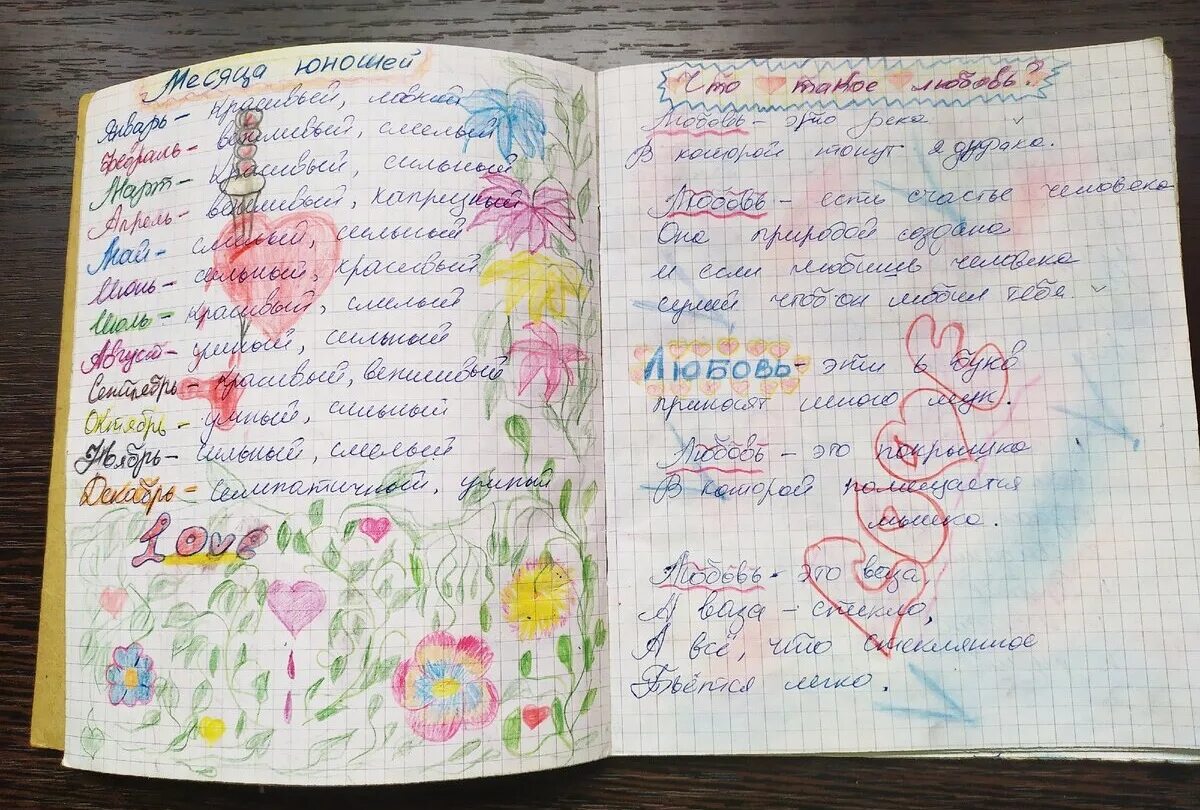 Месяца юношей
Январь- Красивый, ловкий
Февраль- вежливый, смелый
Март- Красивый, сильный
Апрель- вежливый, капризный
Май- смелый, сильный
Июнь- сильный, красивый
Июль- красивый, смелый
Август- умный, сильный
Сентябрь- красивый, вежливый
Октябрь- умный, сильный
Ноябрь- сильный, смелый
Декабрь- симпатичный, умный
Love
Что такое любовь?
Любовь- это река
В которой тонут
Любовь- есть счастье человека
Она природой создана
и если любишь человека
сумей чтоб он любил тебя.
Любовь- эти 6 букв
приносят много мук.
Любовь- это покрышка
В которой помещается
мышка.
Любовь- это ваза,
А ваза- стекло,
А всё, что стеклянное
Бьётся легко.